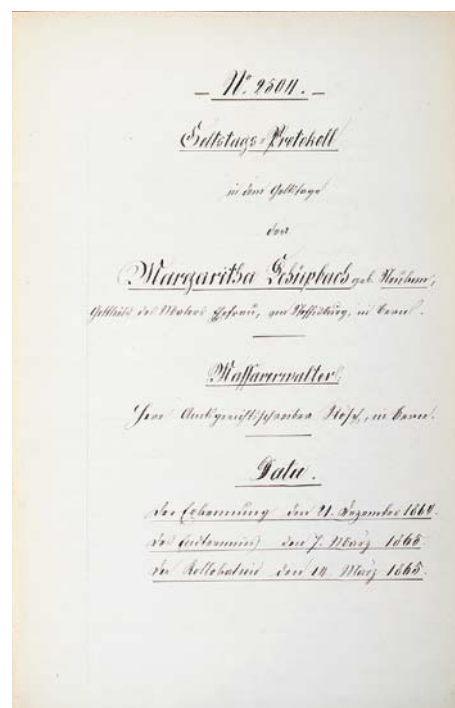 N.° 2504.
Geltstags=Protokoll
in dem Geltstage
der
Margaritha Schüpbach geb.
Gottliebs des Malers Ehefrau, von Steffisburg, in Bern.
Massaverwalter:
Herr Amtsgerichtsschreiber in Bern.
Data.
Der Erkennung den 21. Dezember 1864.
Des den 7. März 1865.
Der Kollokation den 14. März 1865.